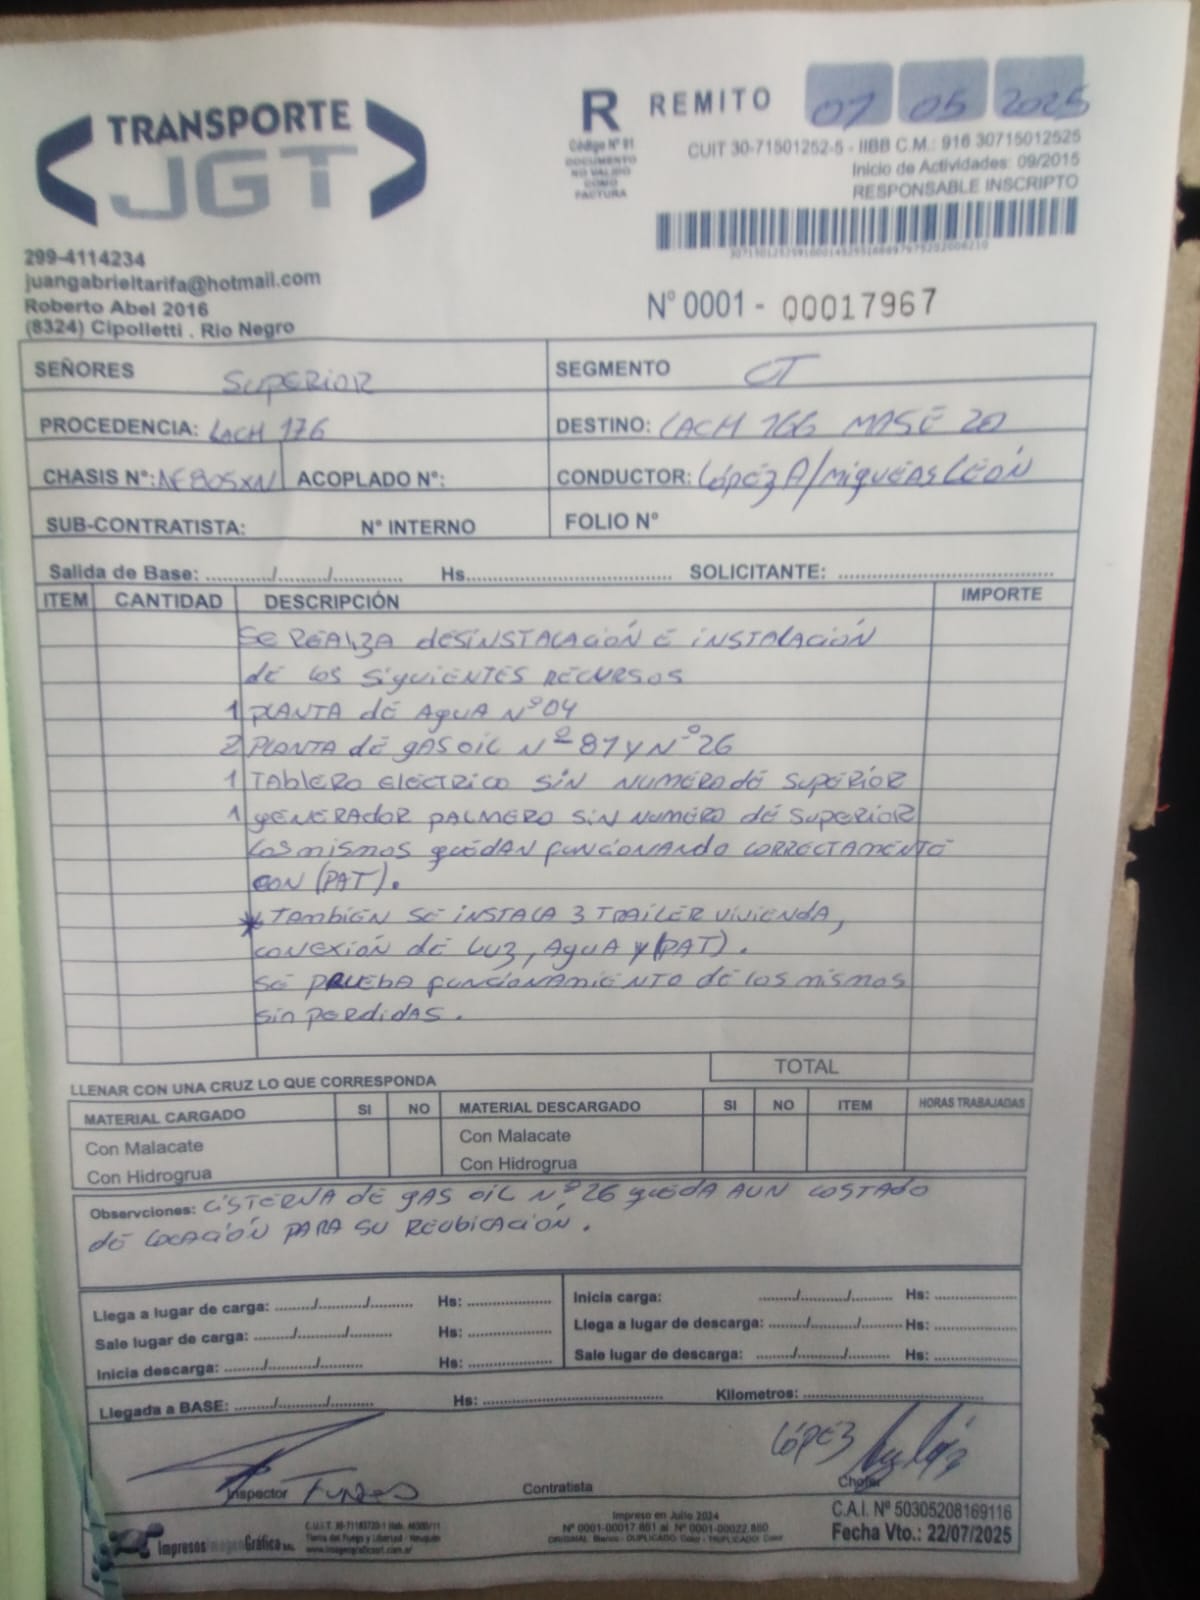 TRANSPORTE
JGT
R
Código N° 91
DOCUMENTO
NO VALIDO
COMO
FACTURA
REMITO
07 05 2025
CUIT 30-71501252-5 - IIBB C.M.: 916 30715012525
Inicio de Actividades: 09/2015
RESPONSABLE INSCRIPTO
299-4114234
juangabrieltarifa@hotmail.com
Roberto Abel 2016
(8324) Cipolletti . Rio Negro
N° 0001 - 00017967
SEÑORES SUPERIOR
SEGMENTO CT
PROCEDENCIA: LACH 176
DESTINO: LACH 166 MASE 20
CHASIS N°: AF805XN ACOPLADO N°:
CONDUCTOR: LÓPEZ A/MIQUEAS LEÓN
SUB-CONTRATISTA: N° INTERNO
FOLIO N°
Salida de Base: ........../........./............ Hs.................... SOLICITANTE: ....................
ITEM CANTIDAD DESCRIPCIÓN IMPORTE
SE REALIZA DESINSTALACIÓN E INSTALACIÓN
DE LOS SIGUIENTES RECURSOS
1 PLANTA DE AGUA N°04
2 PLANTA DE GAS OIL N°81 Y N°26
1 TABLERO ELECTRICO SIN NUMERO DE SUPERIOR
1 GENERADOR PALMERO SIN NUMERO DE SUPERIOR
LOS MISMOS QUEDAN FUNCIONANDO CORRECTAMENTE
CON (PAT).
* TAMBIÉN SE INSTALA 3 TRAILER VIVIENDA,
CONEXIÓN DE LUZ, AGUA Y (PAT).
SE PRUEBA FUNCIONAMIENTO DE LOS MISMOS
SIN PERDIDAS.
TOTAL
LLENAR CON UNA CRUZ LO QUE CORRESPONDA
MATERIAL CARGADO SI NO MATERIAL DESCARGADO SI NO ITEM HORAS TRABAJADAS
Con Malacate Con Malacate
Con Hidrogrua Con Hidrogrua
Observciones: CISTERNA DE GAS OIL N°26 QUEDA AUN COSTADO
DE LOCACIÓN PARA SU REUBICACIÓN.
Llega a lugar de carga: ........./........../........... Hs: ....................
Inicia carga: ......../........../.......... Hs: ....................
Sale lugar de carga: ........./........../........... Hs: ....................
Llega a lugar de descarga: ......../........../.......... Hs: ....................
Inicia descarga: ........./........../........... Hs: ....................
Sale lugar de descarga: ......../........../.......... Hs: ....................
Llegada a BASE: ........./........../........... Hs: .................... Kilometros: ....................
LÓPEZ
Inspector FUNES
Contratista
Chofer
ImpresosImagenGráfica SRL
www.imagengraficasrl.com.ar
Impreso en Julio 2024
C.A.I. N° 50305208169116
Fecha Vto.: 22/07/2025